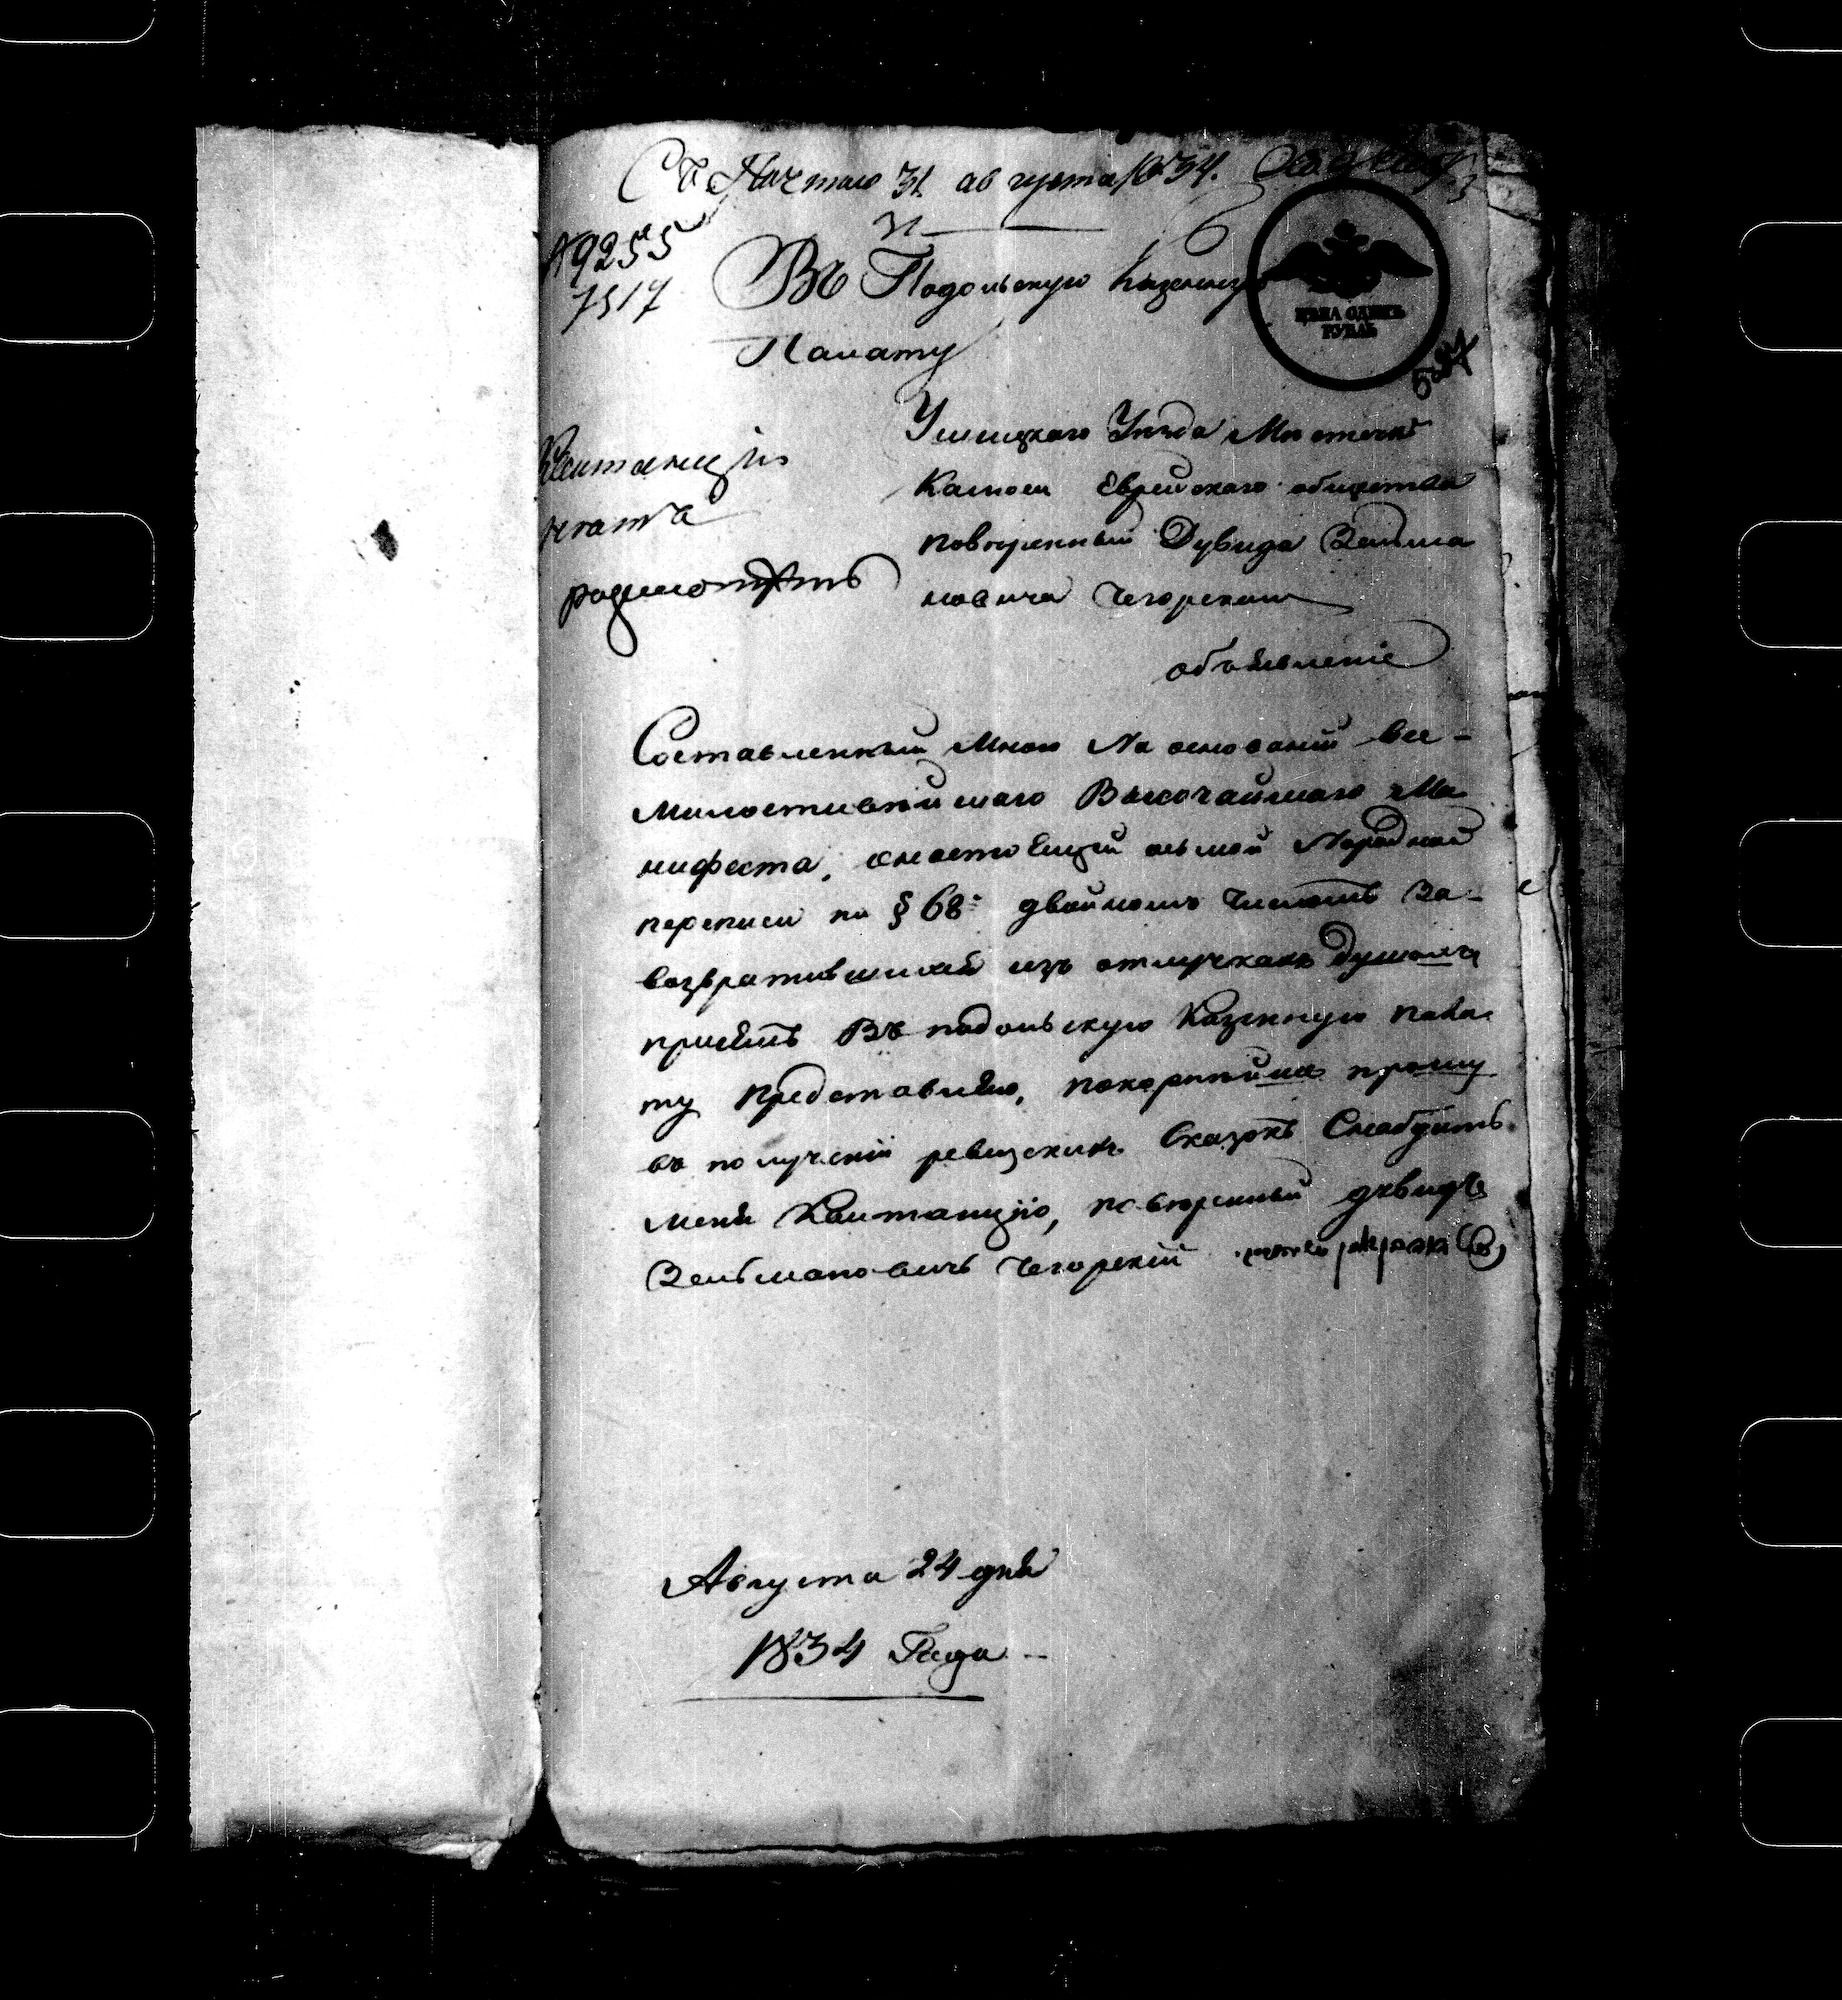 Съ Почтою 31. августа 1834.
31
№ 9255
7517
Въ Подольскую Казенную
Палату
ЦѢНА ОДИНЪ
РУБЛЬ
Ушицкаго Уѣзда Мѣстечка
Еврейскаго общества
повѣренный Дувида Зельма
новича Чегорскаго
объявленіе
Квитанцію
Составленный Мною На основаніи все-
Милостивѣйшаго Высочайшаго Ма
нифеста, осьмой Народной
переписи по § 68. двойномъ За-
возвратившихся изъ отлучкахъ душами
при семъ Въ подольскую Казенную пала
ту Представляю, покорнѣйше прошу
въ полученіи ревизскихъ Сказокъ Снабдить
меня Квитанцію, повѣренный дувидъ
Зельмановичъ Чегорскій
Августа 24 дня
1834 Года